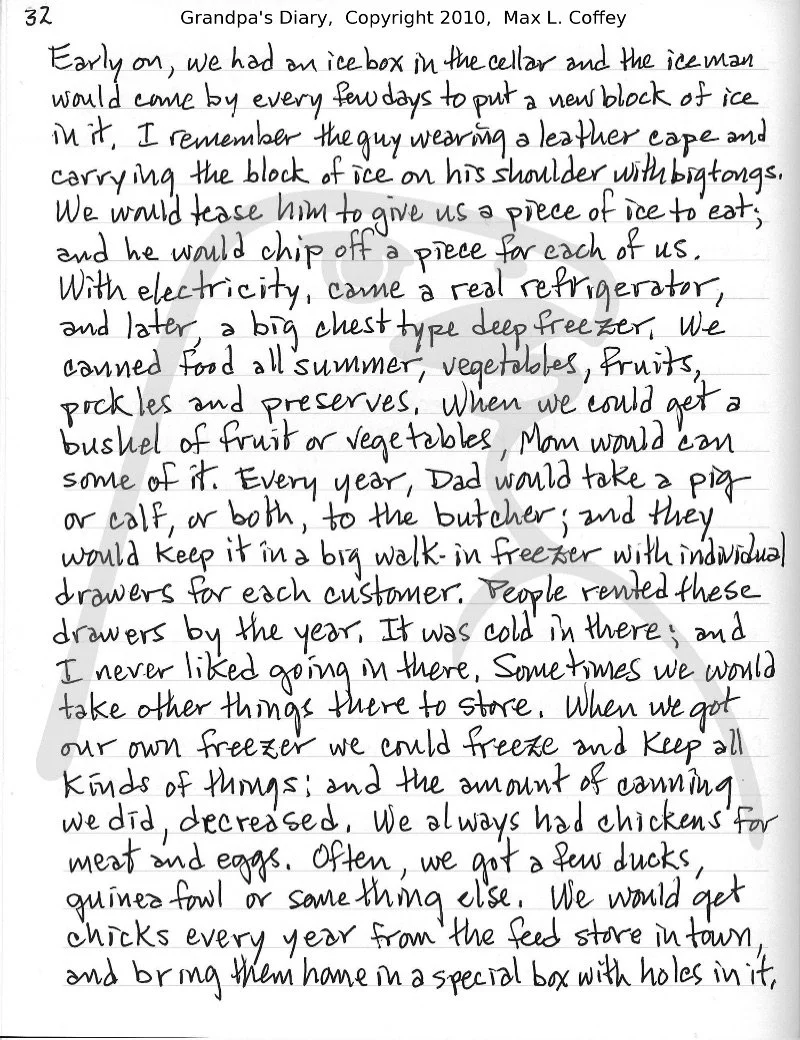 32
Grandpa's Diary, Copyright 2010, Max L. Coffey
Early on, we had an icebox in the cellar and the iceman
would come by every few days to put a new block of ice
in it. I remember the guy wearing a leather cape and
carrying the block of ice on his shoulder with big tongs.
We would tease him to give us a piece of ice to eat;
and he would chip off a piece for each of us.
With electricity, came a real refrigerator,
and later, a big chest type deep freezer. We
canned food all summer, vegetables, fruits,
pickles and preserves. When we could get a
bushel of fruit or vegetables, Mom would can
some of it. Every year, Dad would take a pig
or calf, or both, to the butcher; and they
would keep it in a big walk-in freezer with individual
drawers for each customer. People rented these
drawers by the year. It was cold in there; and
I never liked going in there. Sometimes we would
take other things there to store. When we got
our own freezer we could freeze and keep all
kinds of things; and the amount of canning
we did, decreased. We always had chickens for
meat and eggs. Often, we got a few ducks,
guinea fowl or something else. We would get
chicks every year from the feed store in town,
and bring them home in a special box with holes in it.